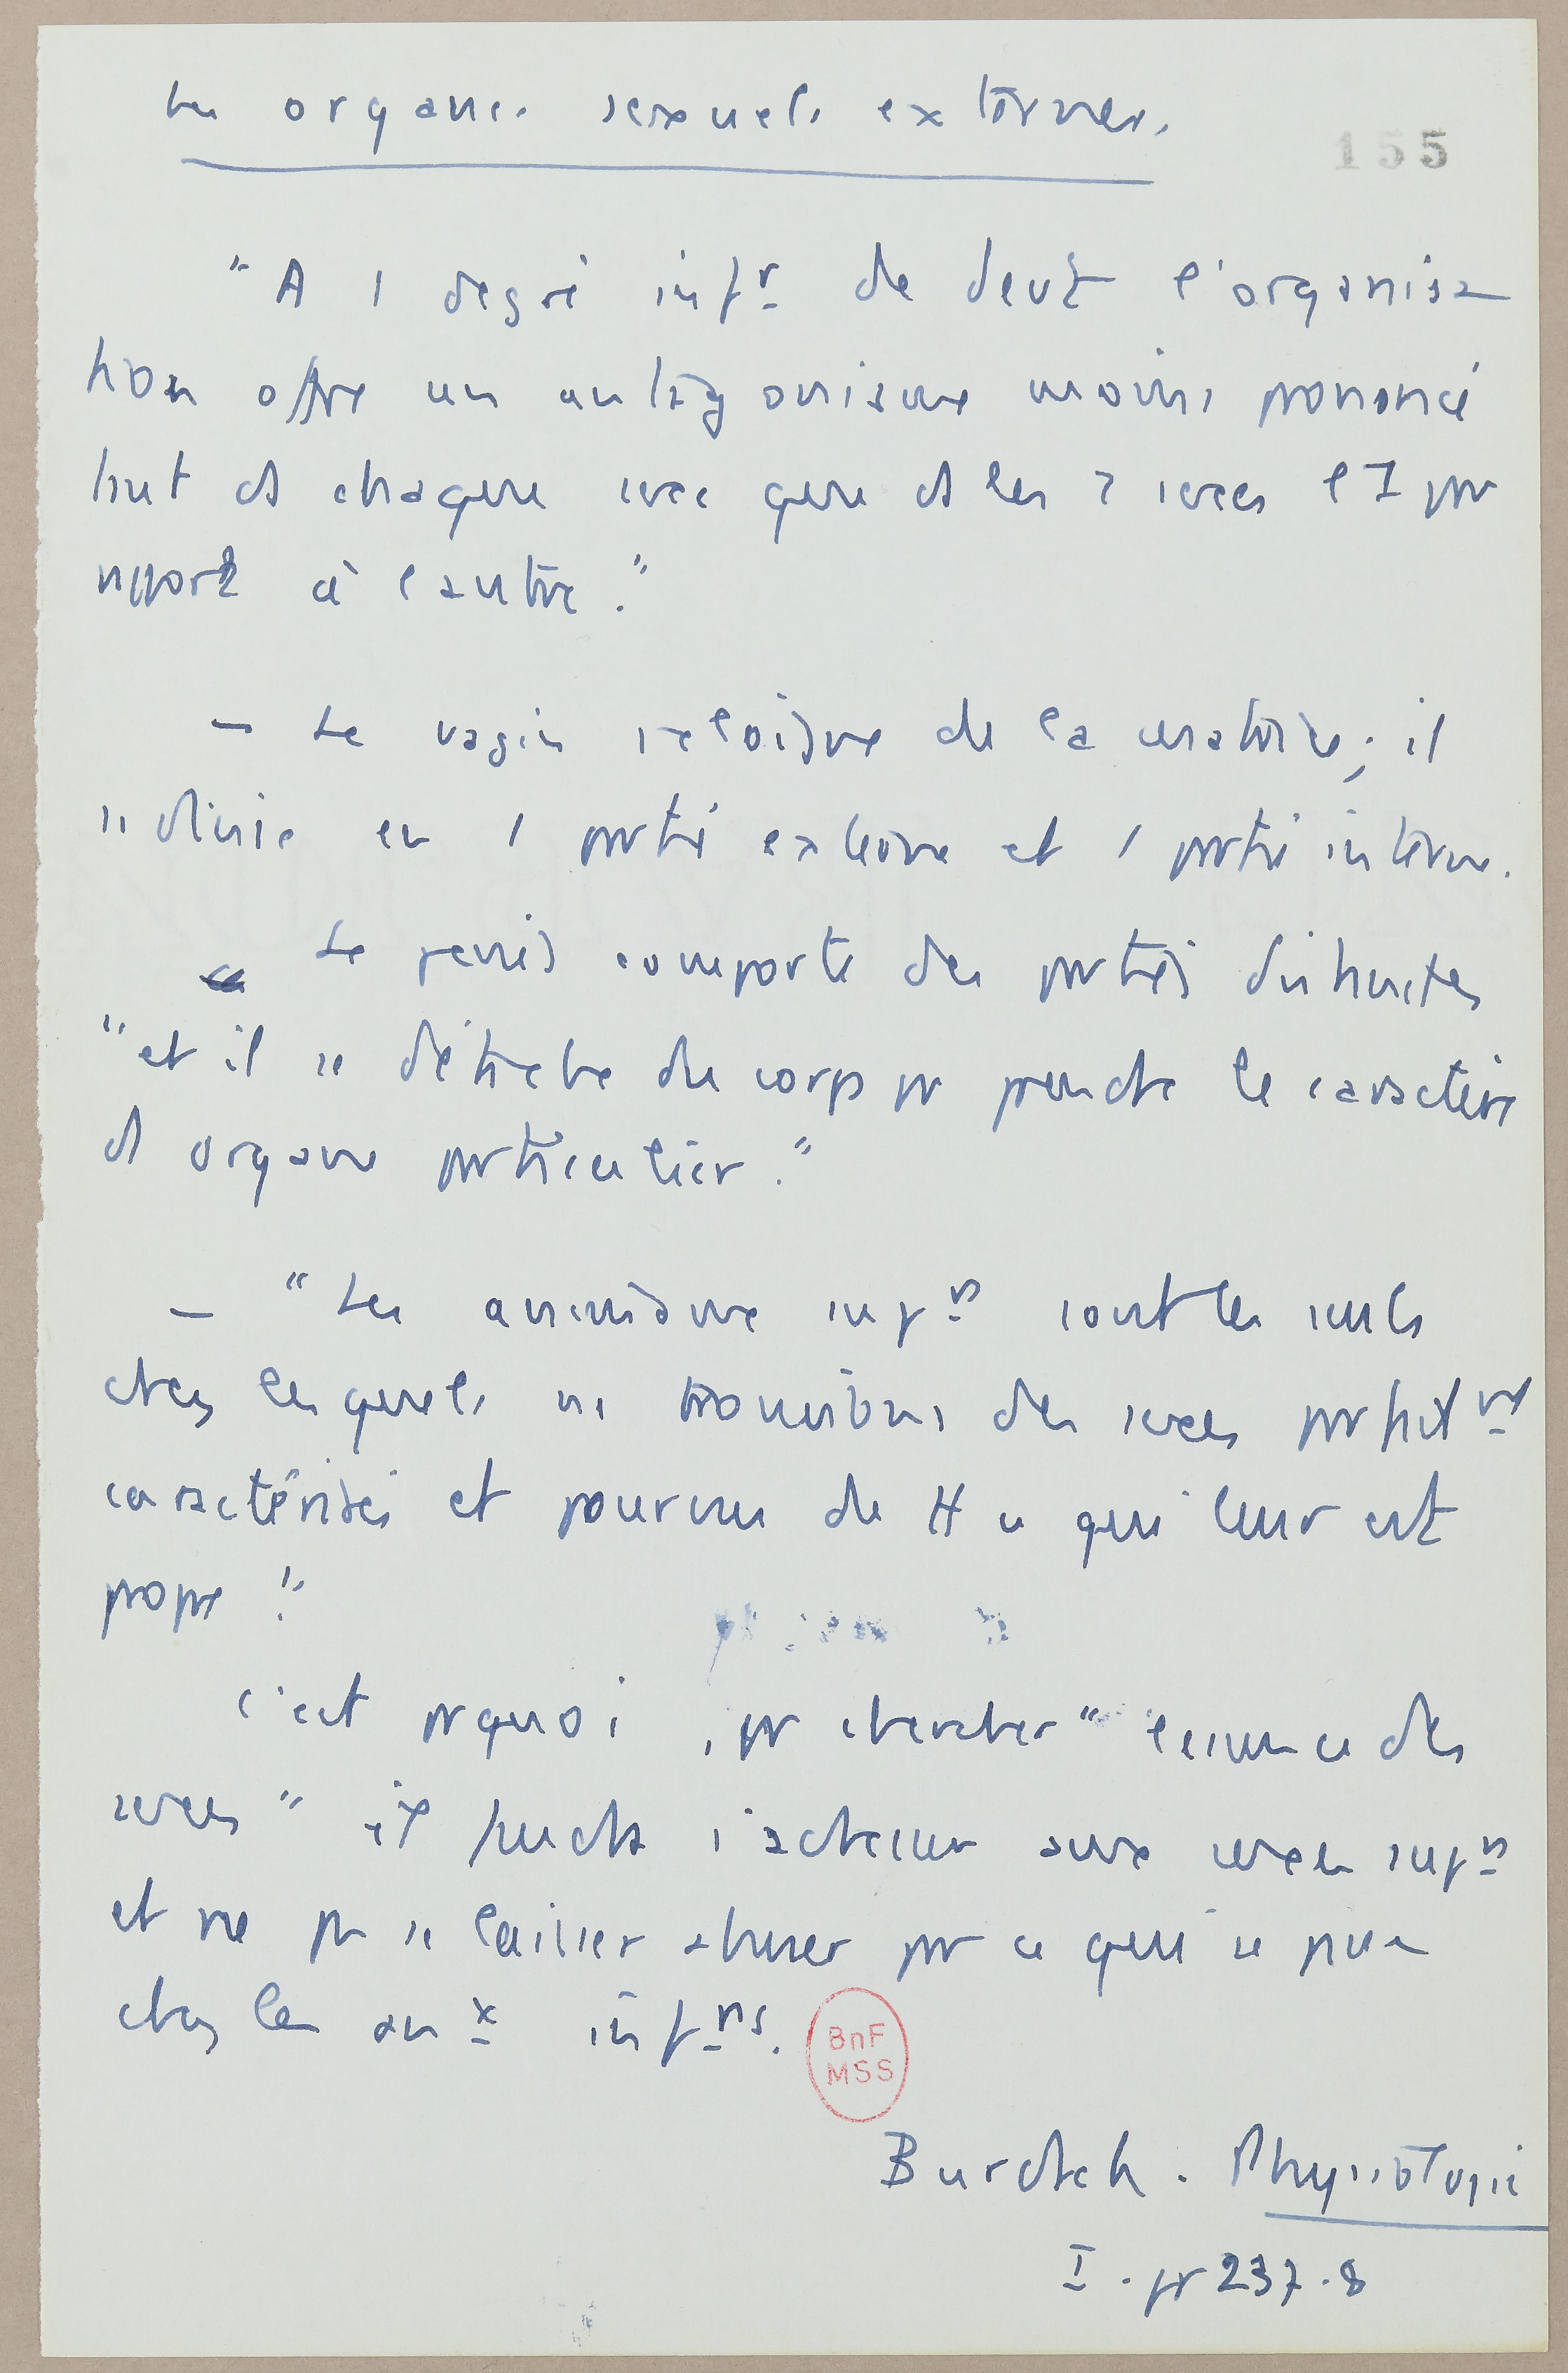 Les organes sexuels externes.
155
"A 1 degré infr de devt l'organisa
tion offre un antagonisme moins prononcé
tant ds chaque sexe que ds les 2 sexes l'1 par
rapport à l'autre."
– Le vagin s'éloigne de la matrice; il
se divise en 1 partie externe et 1 partie interne.
Le pénis comporte des parties distinctes
"et il se détache du corps pr prendre le caractère
d'organe particulier."
– "Les animaux suprs sont les seuls
chez lesquels ns trouvions des sexes parfaitmt
caractérisés et pourvus de tt ce qui leur est
propre."
C'est prquoi, pr chercher "l'essence des
sexes" il faudra s'adresser aux sexes suprs
et ne pas se laisser abuser par ce qui se passe
chez les anx infrs.
BnF
MSS
Burdach. Physiologie
I. pp 237.8